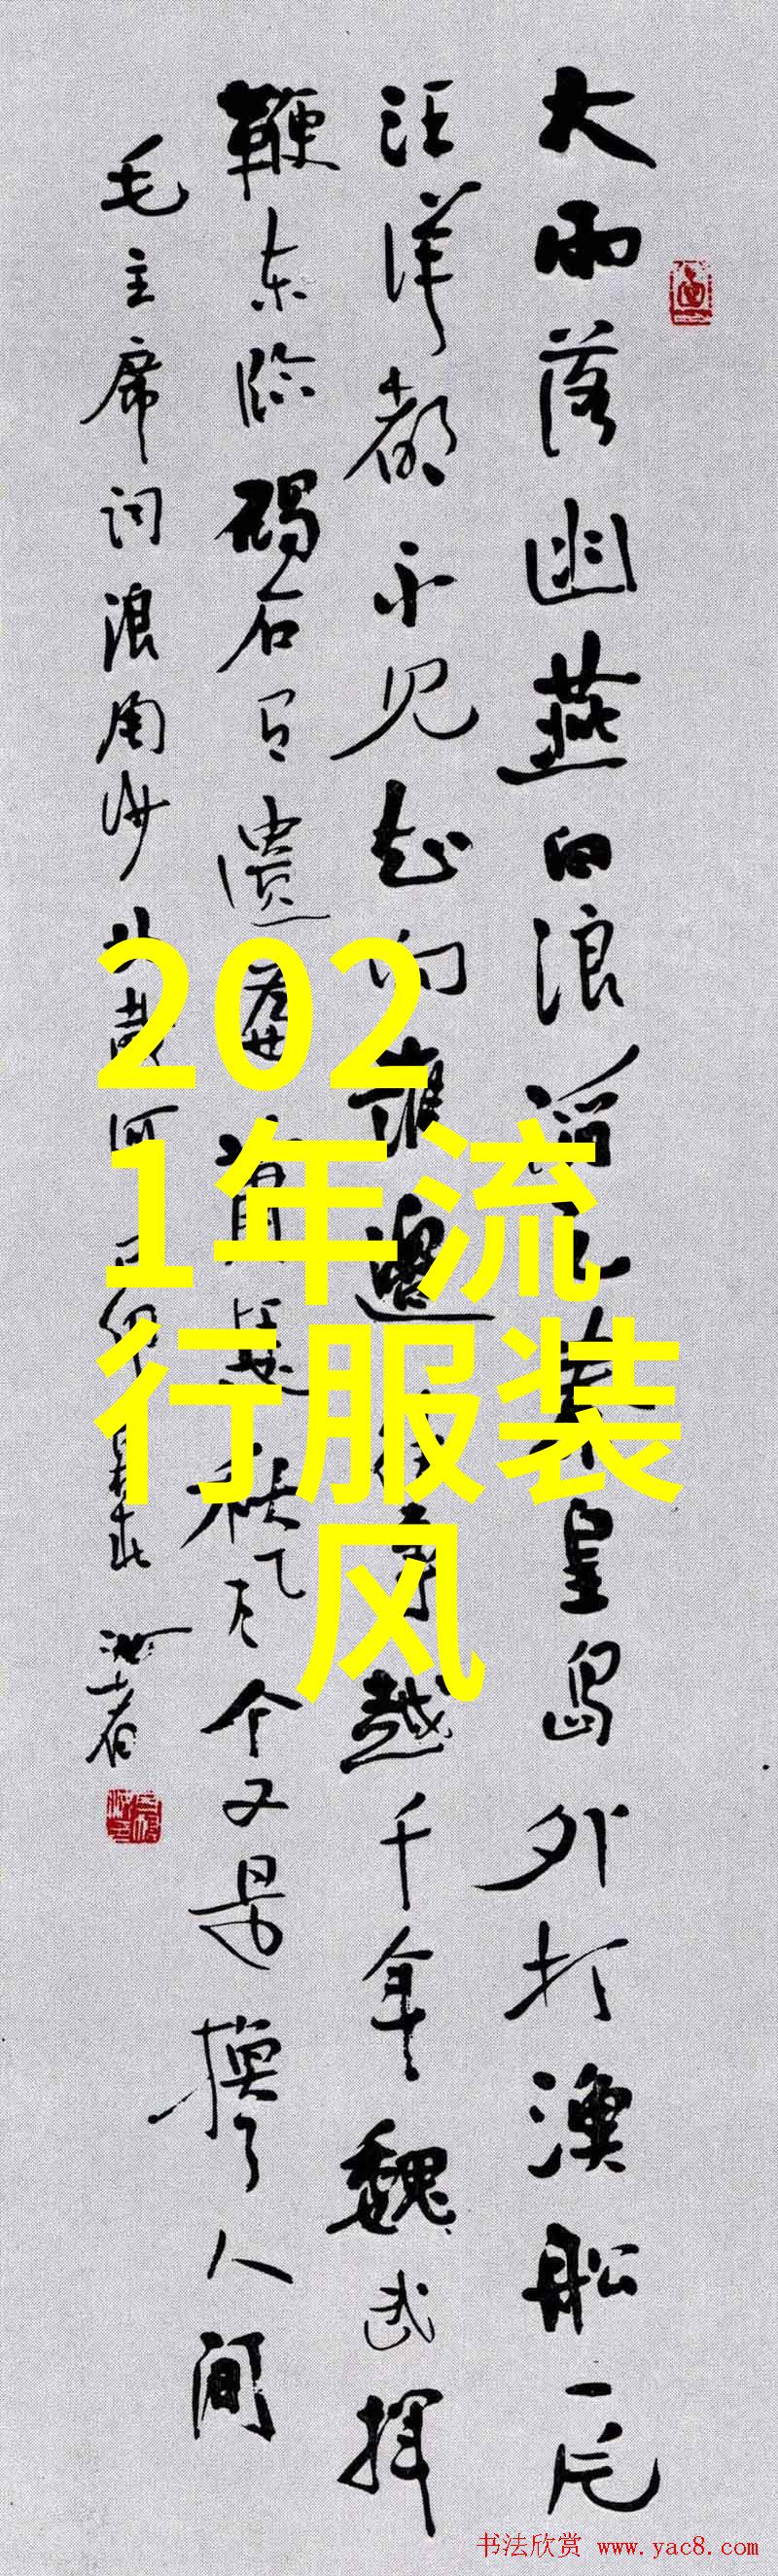 大雨落幽燕白浪滔天秦皇岛外打漁船一片
汪洋都不见知向誰邊往事越千年魏武挥
鞭东临碣石有遗篇萧瑟秋风今又是换了人间
毛主席词浪淘沙北戴河
202
1年流
行服装
风
书法欣赏 www.yac8.com